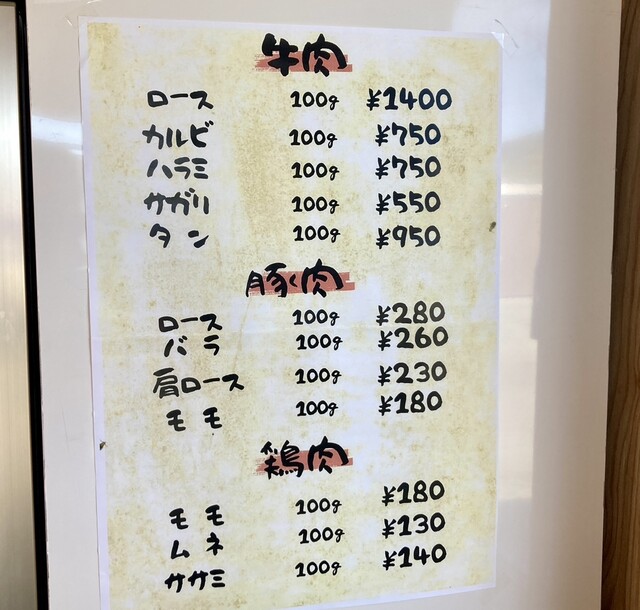 牛肉
ロース 100g ¥1400
カルビ 100g ¥750
ハラミ 100g ¥750
サガリ 100g ¥550
タン 100g ¥950
豚肉
ロース 100g ¥280
バラ 100g ¥260
肩ロース 100g ¥230
モモ 100g ¥180
鶏肉
モモ 100g ¥180
ムネ 100g ¥130
ササミ 100g ¥140